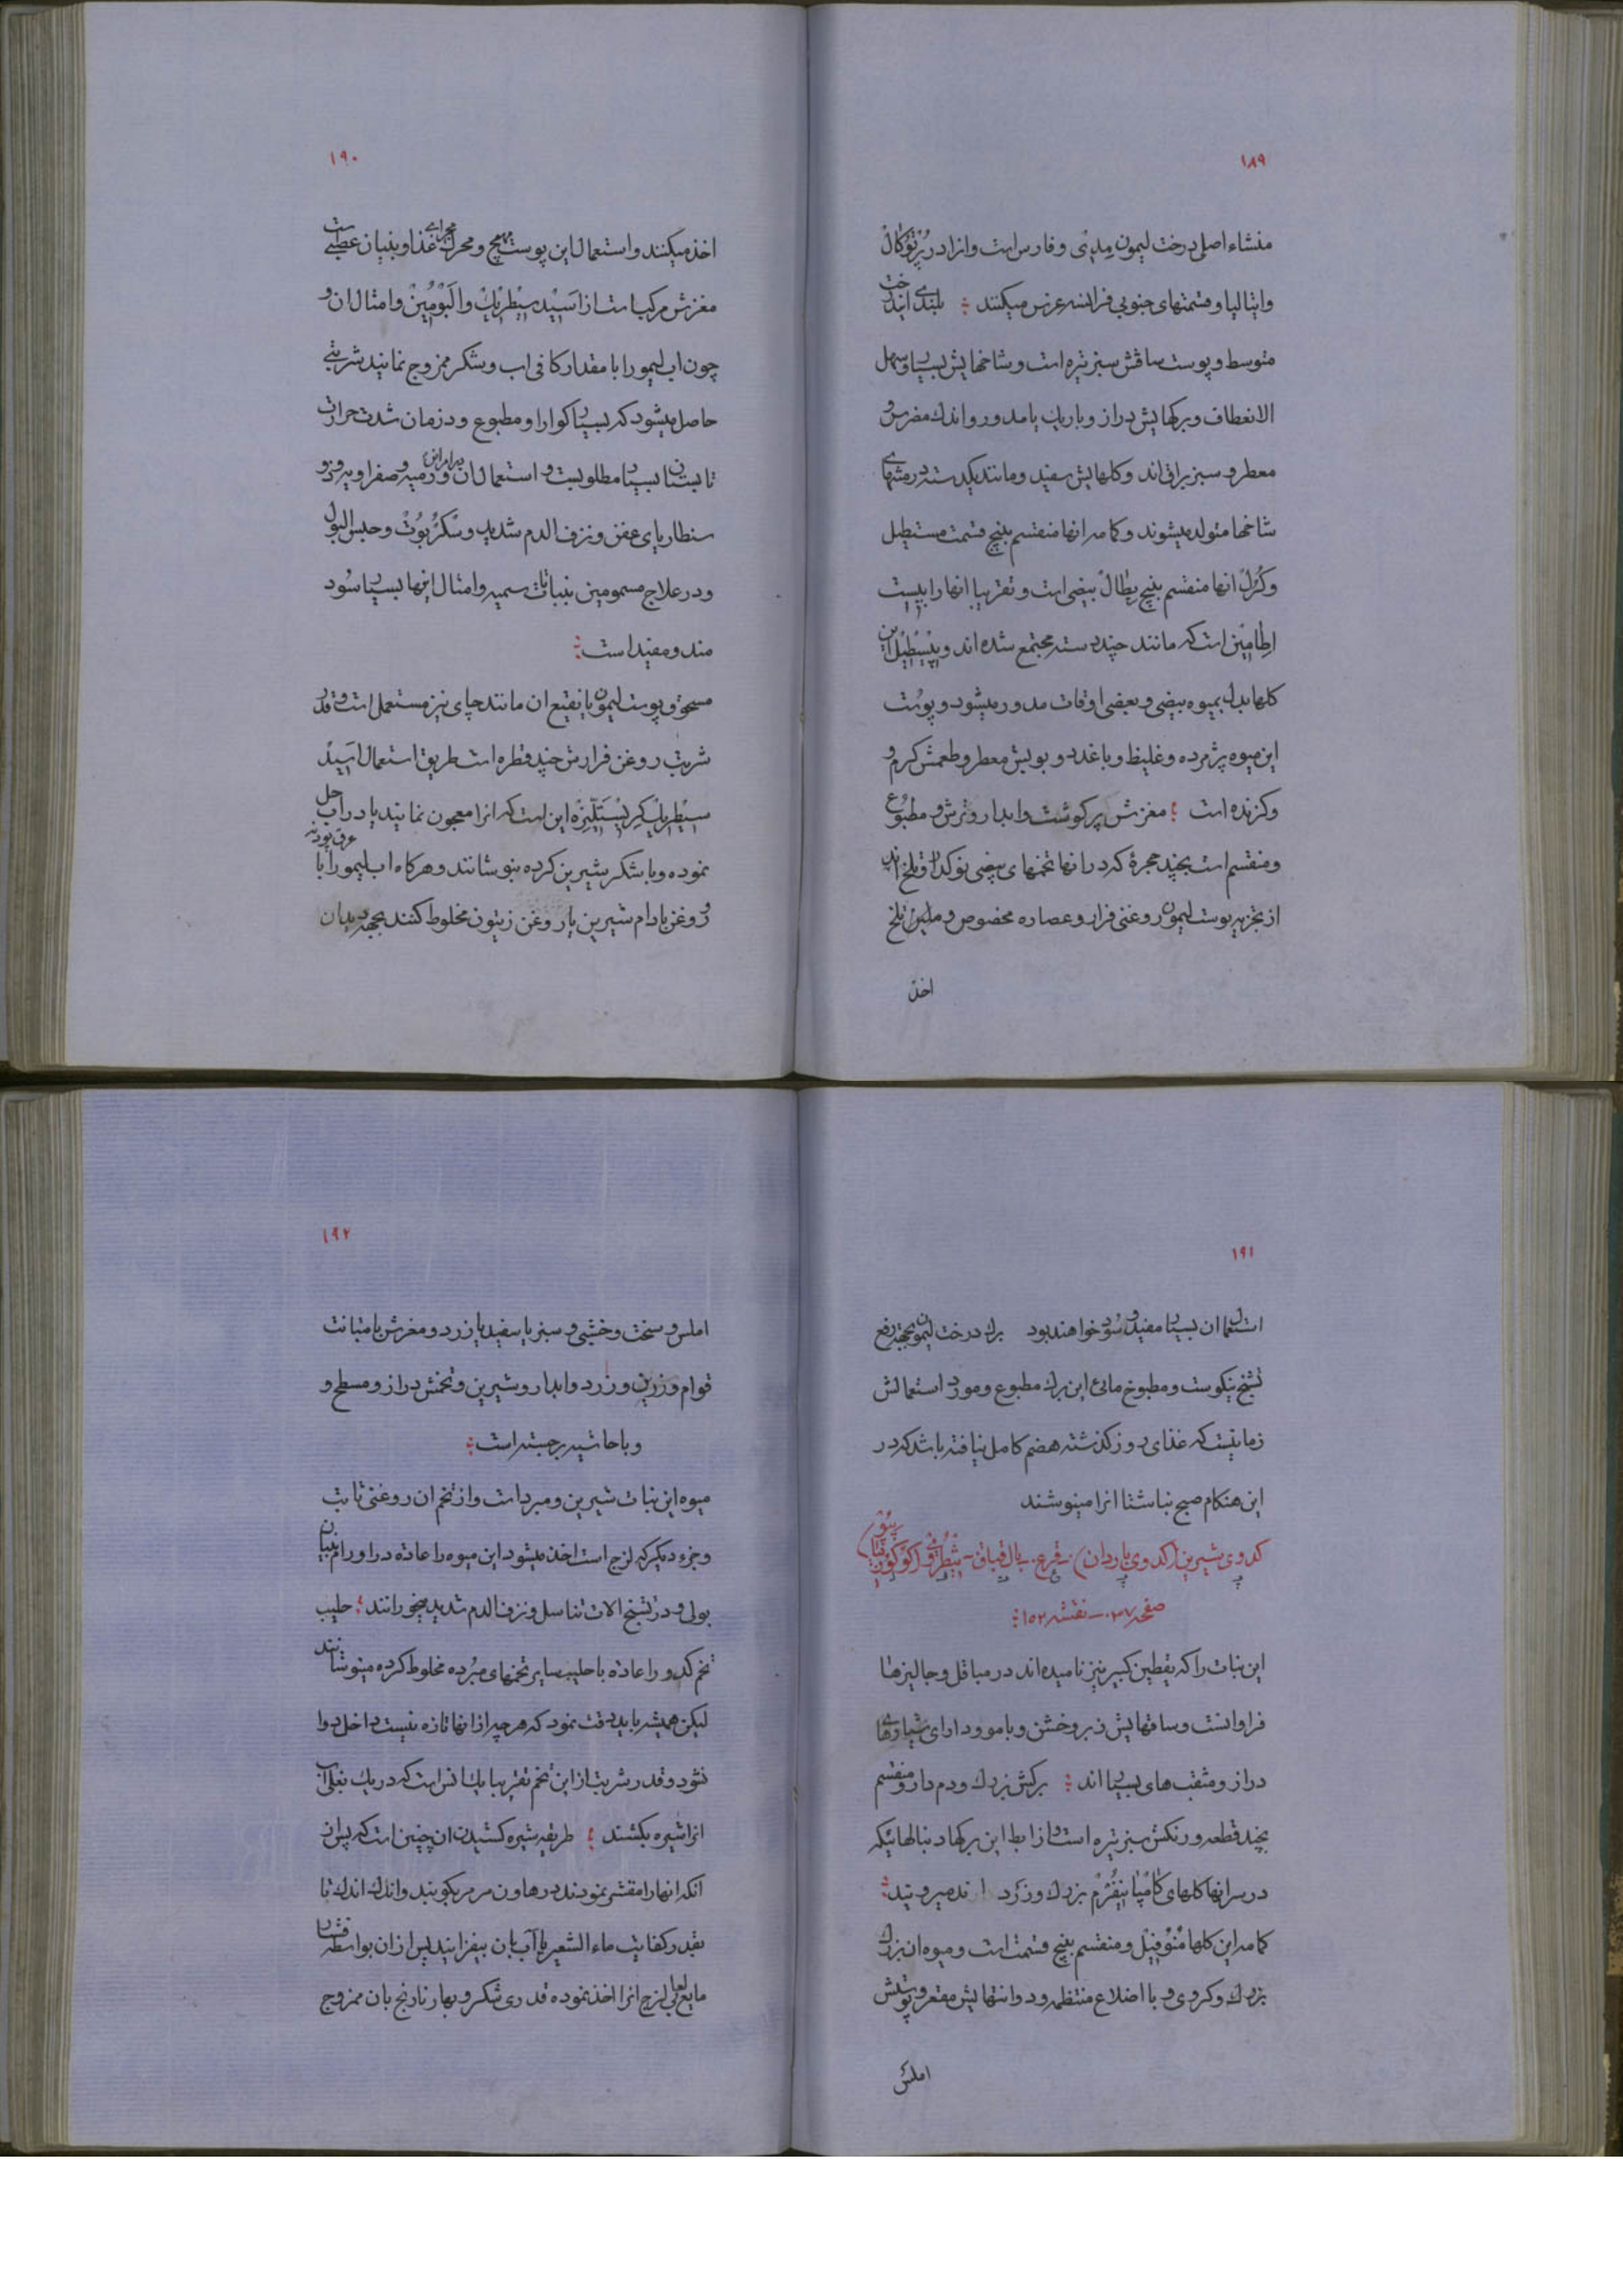 ۱۸۹
منشاء اصلی درخت لیمون مدینی و فارس است و انرا در پرتوکال
و ایتالیا و قسمتهای جنوبی فرانسه غرس میکنند ؛ بلندی ایندرخت
متوسط و پوست ساقش سبز تیره است و شاخهایش بسیار و سهل
الانعطاف و برکهایش دراز و باریک یا مدور و اندک مضرس و
معطر و سبز براق اند و کلهایش سفید و مانند یکدسته در منتهای
شاخها متولد میشوند و کاسه انها منقسم بپنج قسمت مستطیل
و کرل انها منقسم بپنج پطال بیضی است و تقریبا انها را بیست
اطامین است که مانند چند دسته مجتمع شده اند و پیسطیل این
کلها بدل بمیوه بیضی و بعضی اوقات مدور میشود و پوست
این میوه پژمرده و غلیظ و با غدد و بویش معطر و طعمش کرم و
و کزنده است ؛ مغزش پر کوشت و ابدار و ترش و مطبوع
و منقسم است بچند حجره که در انها تخمهای بیضی نوکدار و تلخ اند
از تجزیه پوست لیمون روغنی فرار و عصاره مخصوص و ملین تلخ
اخذ
۱۹۰
اخذ میکنند و استعمال این پوست مهیج و محرک مجرای غذا و بنیان عصبی است
مغزش مرکب است از اسید سیطریک و البومین و امثال ان و
چون اب لیمو را با مقدار کافی اب و شکر ممزوج نمایند شربتی
حاصل میشود که بسیار کوارا و مطبوع و در زمان شدت حرارت
تابستان بسیار مطلوبست و استعمال ان در امراض ورمیه و صفراویه و تیفو
سنطاریای عفن و نزف الدم شدید و سکربوت و حبس البول
و در علاج مسمومین بنباتات سمیه و امثال اینها بسیار سود
مند و مفید است ؛
مسحوق پوست لیمون یا نقیع ان مانند چای نیز مستعمل است و قدر
شربت روغن فرارش چند قطره است طریق استعمال اسید
سیطریک کریستالیزه این است که انرا معجون نمایند یا در اب حل
نموده و با شکر شیرین کرده بنوشانند و هرکاه اب لیمو را با عرق پودنه
و روغن بادام شیرین یا روغن زیتون مخلوط کنند بجهة دیدان
۱۹۱
استعمال ان بسیار مفید و سود خواهند بود برک درخت لیمو بجهة رفع
تشنج نیکوست و مطبوخ مائی این برک مطبوع و مورد استعمالش
زمانیست که غذای روز کذشته هضم کامل نیافته باشد که در
این هنکام صبح ناشتا انرا مینوشند
کدوی شیرین (کدوی پاردان) - قرع - بال قباق -
صفحه ۳۷ - نقشه ۱۵۲ ؛
این نبات را که یقطین کبیر نیز نامیده اند در مباقل و جالیزها
فراوانست و ساقهایش زبر و خشن و با مو و دارای شیارهای
دراز و مثقب های بسیار اند ؛ برکش بزرک و دم دار و منقسم
بچند قطعه و رنکش سبز تیره است و از ابط این برکها دنبالهائیکه
در سر انها کلهای کامپانیفرم بزرک و زرد اند میروئید ؛
کاسه این کلها منوفیل و منقسم بپنج قسمت است و میوه ان بزرک
بزرک و کروی و با اضلاع منتظمه و دو انتهایش مقعر و پوستش
املس
۱۹۲
املس و سخت و خشبی و سبز یا سفید یا زرد و مغزش با متانت
قوام و زرین و زرد و ابدار و شیرین و تخمش دراز و مسطح و
و با حاشیه برجسته است ؛
میوه این نبات شیرین و مبرد است و از تخم ان روغنی ثابت
و جزء دیکر که لزج است اخذ میشود این میوه را عادة در اورام بنیان
بولی و در تشنج الات تناسل و نزف الدم شدید میخورانند ؛ حلیب
تخم کدو را عادة با حلیب سایر تخمهای مبرده مخلوط کرده مینوشانند
لیکن همیشه باید دقت نمود که هر چه از انها تازه نیست داخل دوا
نشود و قدر شربت از این تخم تقریبا یک انس است که در یک بغلی آب
انرا شیره بکشند ؛ طریقه شیره کشیدن ان چنین است که پس از
آنکه انها را مقشر نمودند در هاون مرمر بکوبند و اندک اندک تا
بقدر کفایت ماء الشعیر یا آب بان بیفزایند پس از ان بواسطه فشار
مایع لعابی لزج انرا اخذ نموده قدری شکر و بهار نارنج بان ممزوج